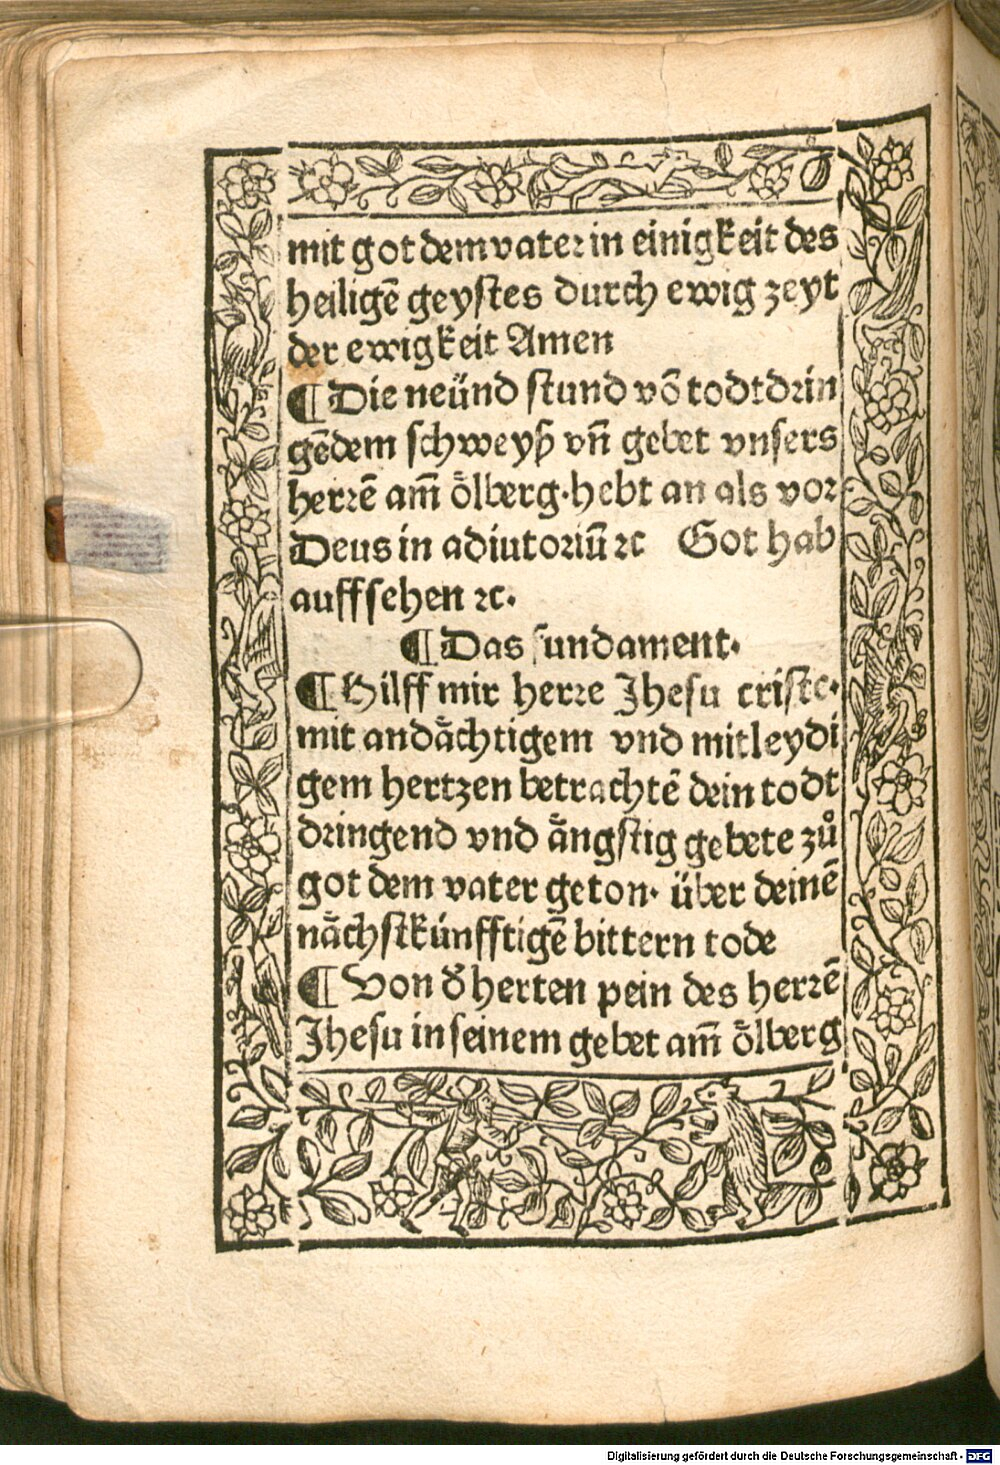 mit got dem vater in einigkeit des
heiligẽ geystes durch ewig zeyt
der ewigkeit Amen
¶ Die neünd stund võ todtdrin
gẽdem schweyß vñ gebet vnsers
herꝛẽ am̃ oͤlberg·hebt an als voꝛ
Deus in adiutoꝛiũ ꝛc Got hab
auffsehen ꝛc.
¶ Das fundament.
¶ Hilff mir herre Jhesu criste.
mit andaͤchtigem vnd mitleydi
gem hertzen betrachtẽ dein todt
dꝛingend vnd aͤngstig gebete zů
got dem vater geton· über deinẽ
naͤchstkünfftigẽ bittern tode
¶ Von d̕ herten pein des herꝛẽ
Jhesu in seinem gebet am̃ oͤlberg
Digitalisierung gefördert durch die Deutsche Forschungsgemeinschaft - DFG